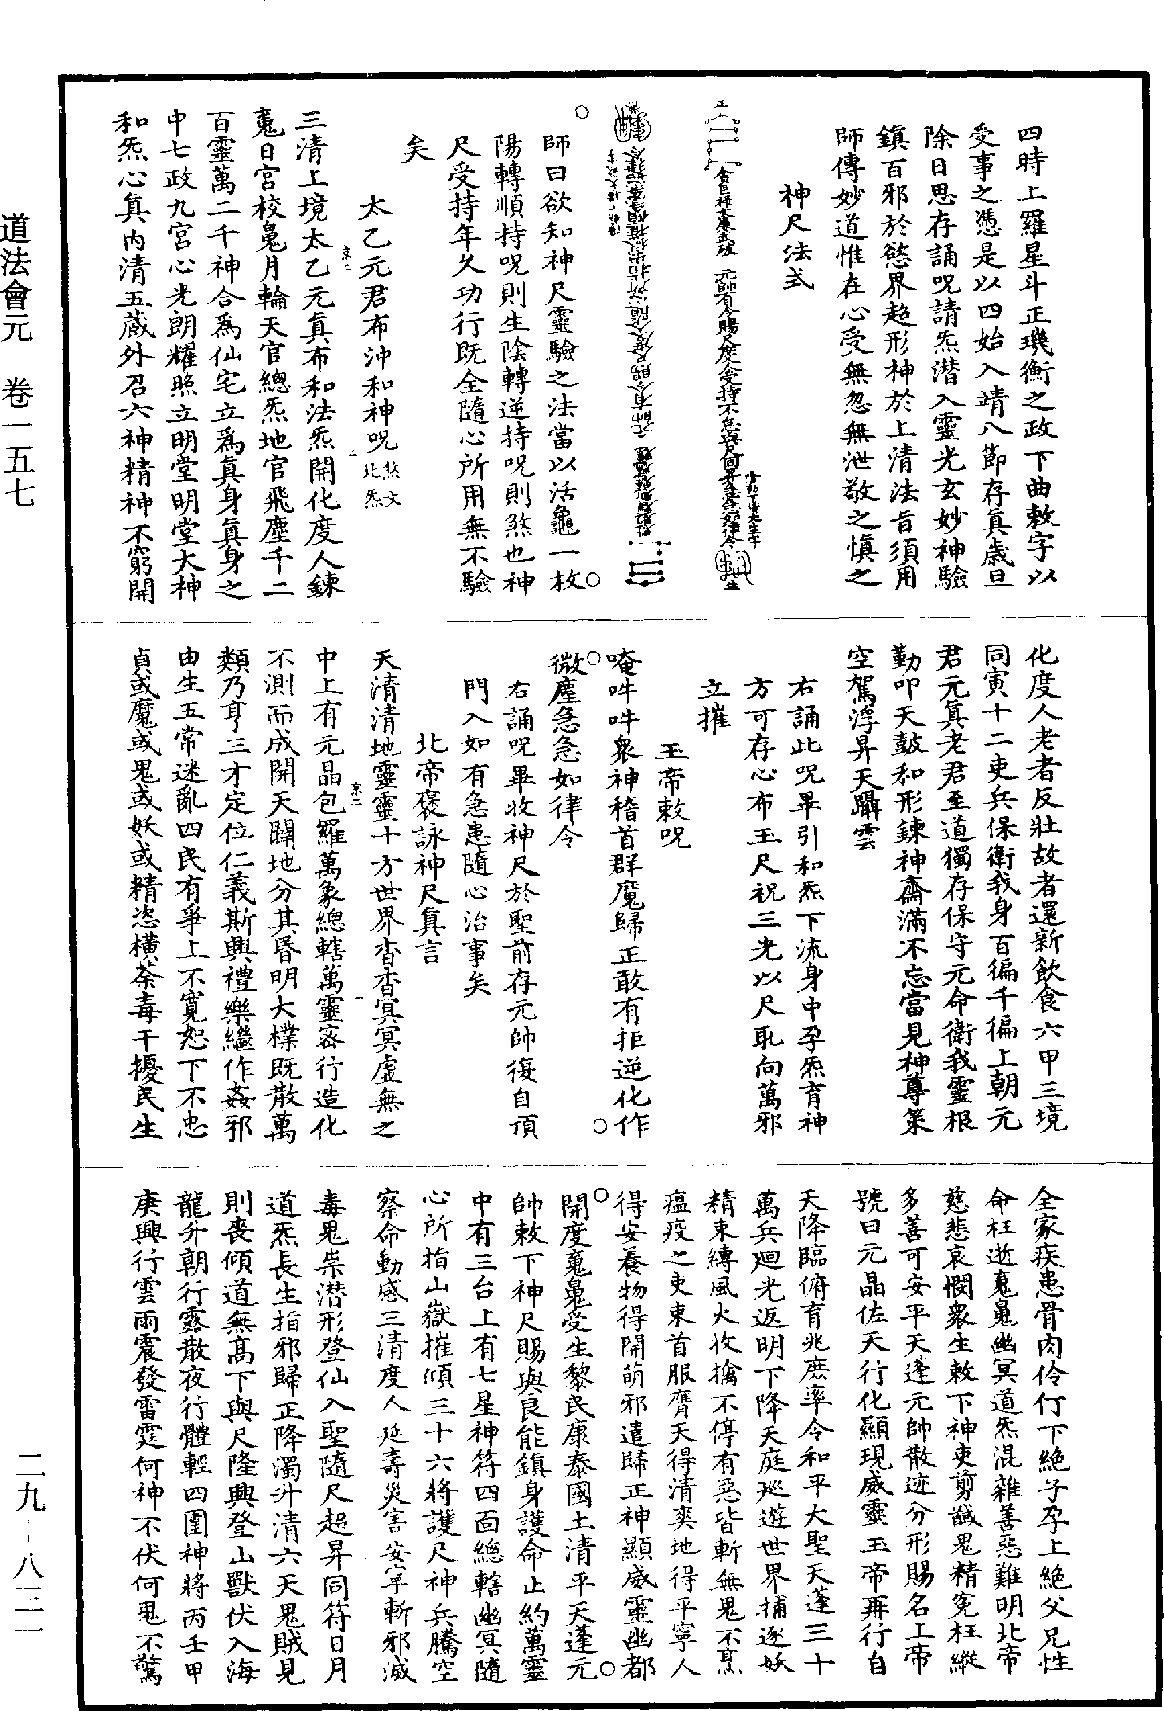 道法會元　卷一五七
二九－八二一
四時上羅星斗正璣衡之政下曲敕字以
受事之憑是以四始入靖八節存真歲旦
除日思存誦呪請炁潛入靈光玄妙神驗
鎮百邪於慾界超形神於上清法旨須用
師傳妙道惟在心受無忽無泄敬之慎之
神尺法式
師曰欲知神尺靈驗之法當以活龜一枚
陽轉順持呪則生陰轉逆持呪則煞也神
尺受持年久功行既全隨心所用無不驗
矣
太乙元君布沖和神呪
三清上境太乙元真布和法炁開化度人鍊
䰟日宮校䰟月輪天官總炁地官飛塵千二
百靈萬二千神合為仙宅立為真身真身之
中七政九宮心光朗耀照立明堂明堂大神
和炁心真內清五藏外召六神精神不窮開
化度人老者反壯故者還新飲食六甲三境
同寅十二吏兵保衛我身百徧千徧上朝元
君元真老君至道獨存保守元命衛我靈根
勤叩天鼓和形鍊神齋滿不忘當見神尊策
空駕浮昇天躡雲
右誦此呪畢引和炁下流身中孕炁育神
方可存心布玉尺祝三光以尺馭向萬邪
立摧
玉帝敕呪
唵吽吽衆神稽首群魔歸正敢有拒逆化作
微塵急急如律令
右誦呪畢收神尺於聖前存元帥復自頂
門入如有急患隨心治事矣
北帝褒詠神尺真言
天清清地靈靈十方世界杳杳冥冥虛無之
中上有元晶包羅萬象總轄萬靈密行造化
不測而成開天闢地分其昏明大樸既散萬
類乃亨三才定位仁義斯興禮樂繼作姦邪
由生五常迷亂四民有爭上不寬恕下不忠
貞或魔或鬼或妖或精恣橫荼毒干擾民生
全家疾患骨肉伶仃下絶子孕上絶父兄性
命枉逝䰟䰟幽冥道炁混雜善惡難明北帝
慈悲哀憫衆生敕下神吏剪馘鬼精冤枉縱
多善可安平天蓬元帥散迹分形賜名上帝
號曰元晶佐天行化顯現威靈玉帝再行自
天降臨俯育兆庶率令和平大聖天蓬三十
萬兵迴光返明下降天庭廵遊世界捕逐妖
精束縛風火收擒不停有惡皆斬無鬼不烹
瘟疫之吏束首服膺天得清爽地得平寧人
得安養物得開萌邪遣歸正神顯威靈幽都
開度䰟䰟受生黎民康泰國土清平天蓬元
帥敕下神尺賜與良能鎮身護命止約萬靈
中有三台上有七星神符四面總轄幽冥隨
心所指山嶽摧傾三十六將護尺神兵騰空
察命動感三清度人延壽災害安寧斬邪滅
毒鬼祟潛形登仙入聖隨尺起昇同符日月
道炁長生指邪歸正降濁升清六天鬼賊見
則喪傾道無高下與尺隆興登山獸伏入海
龍升朝行露散夜行體輕四圍神將丙壬甲
庚興行雲雨震發雷霆何神不伏何鬼不驚